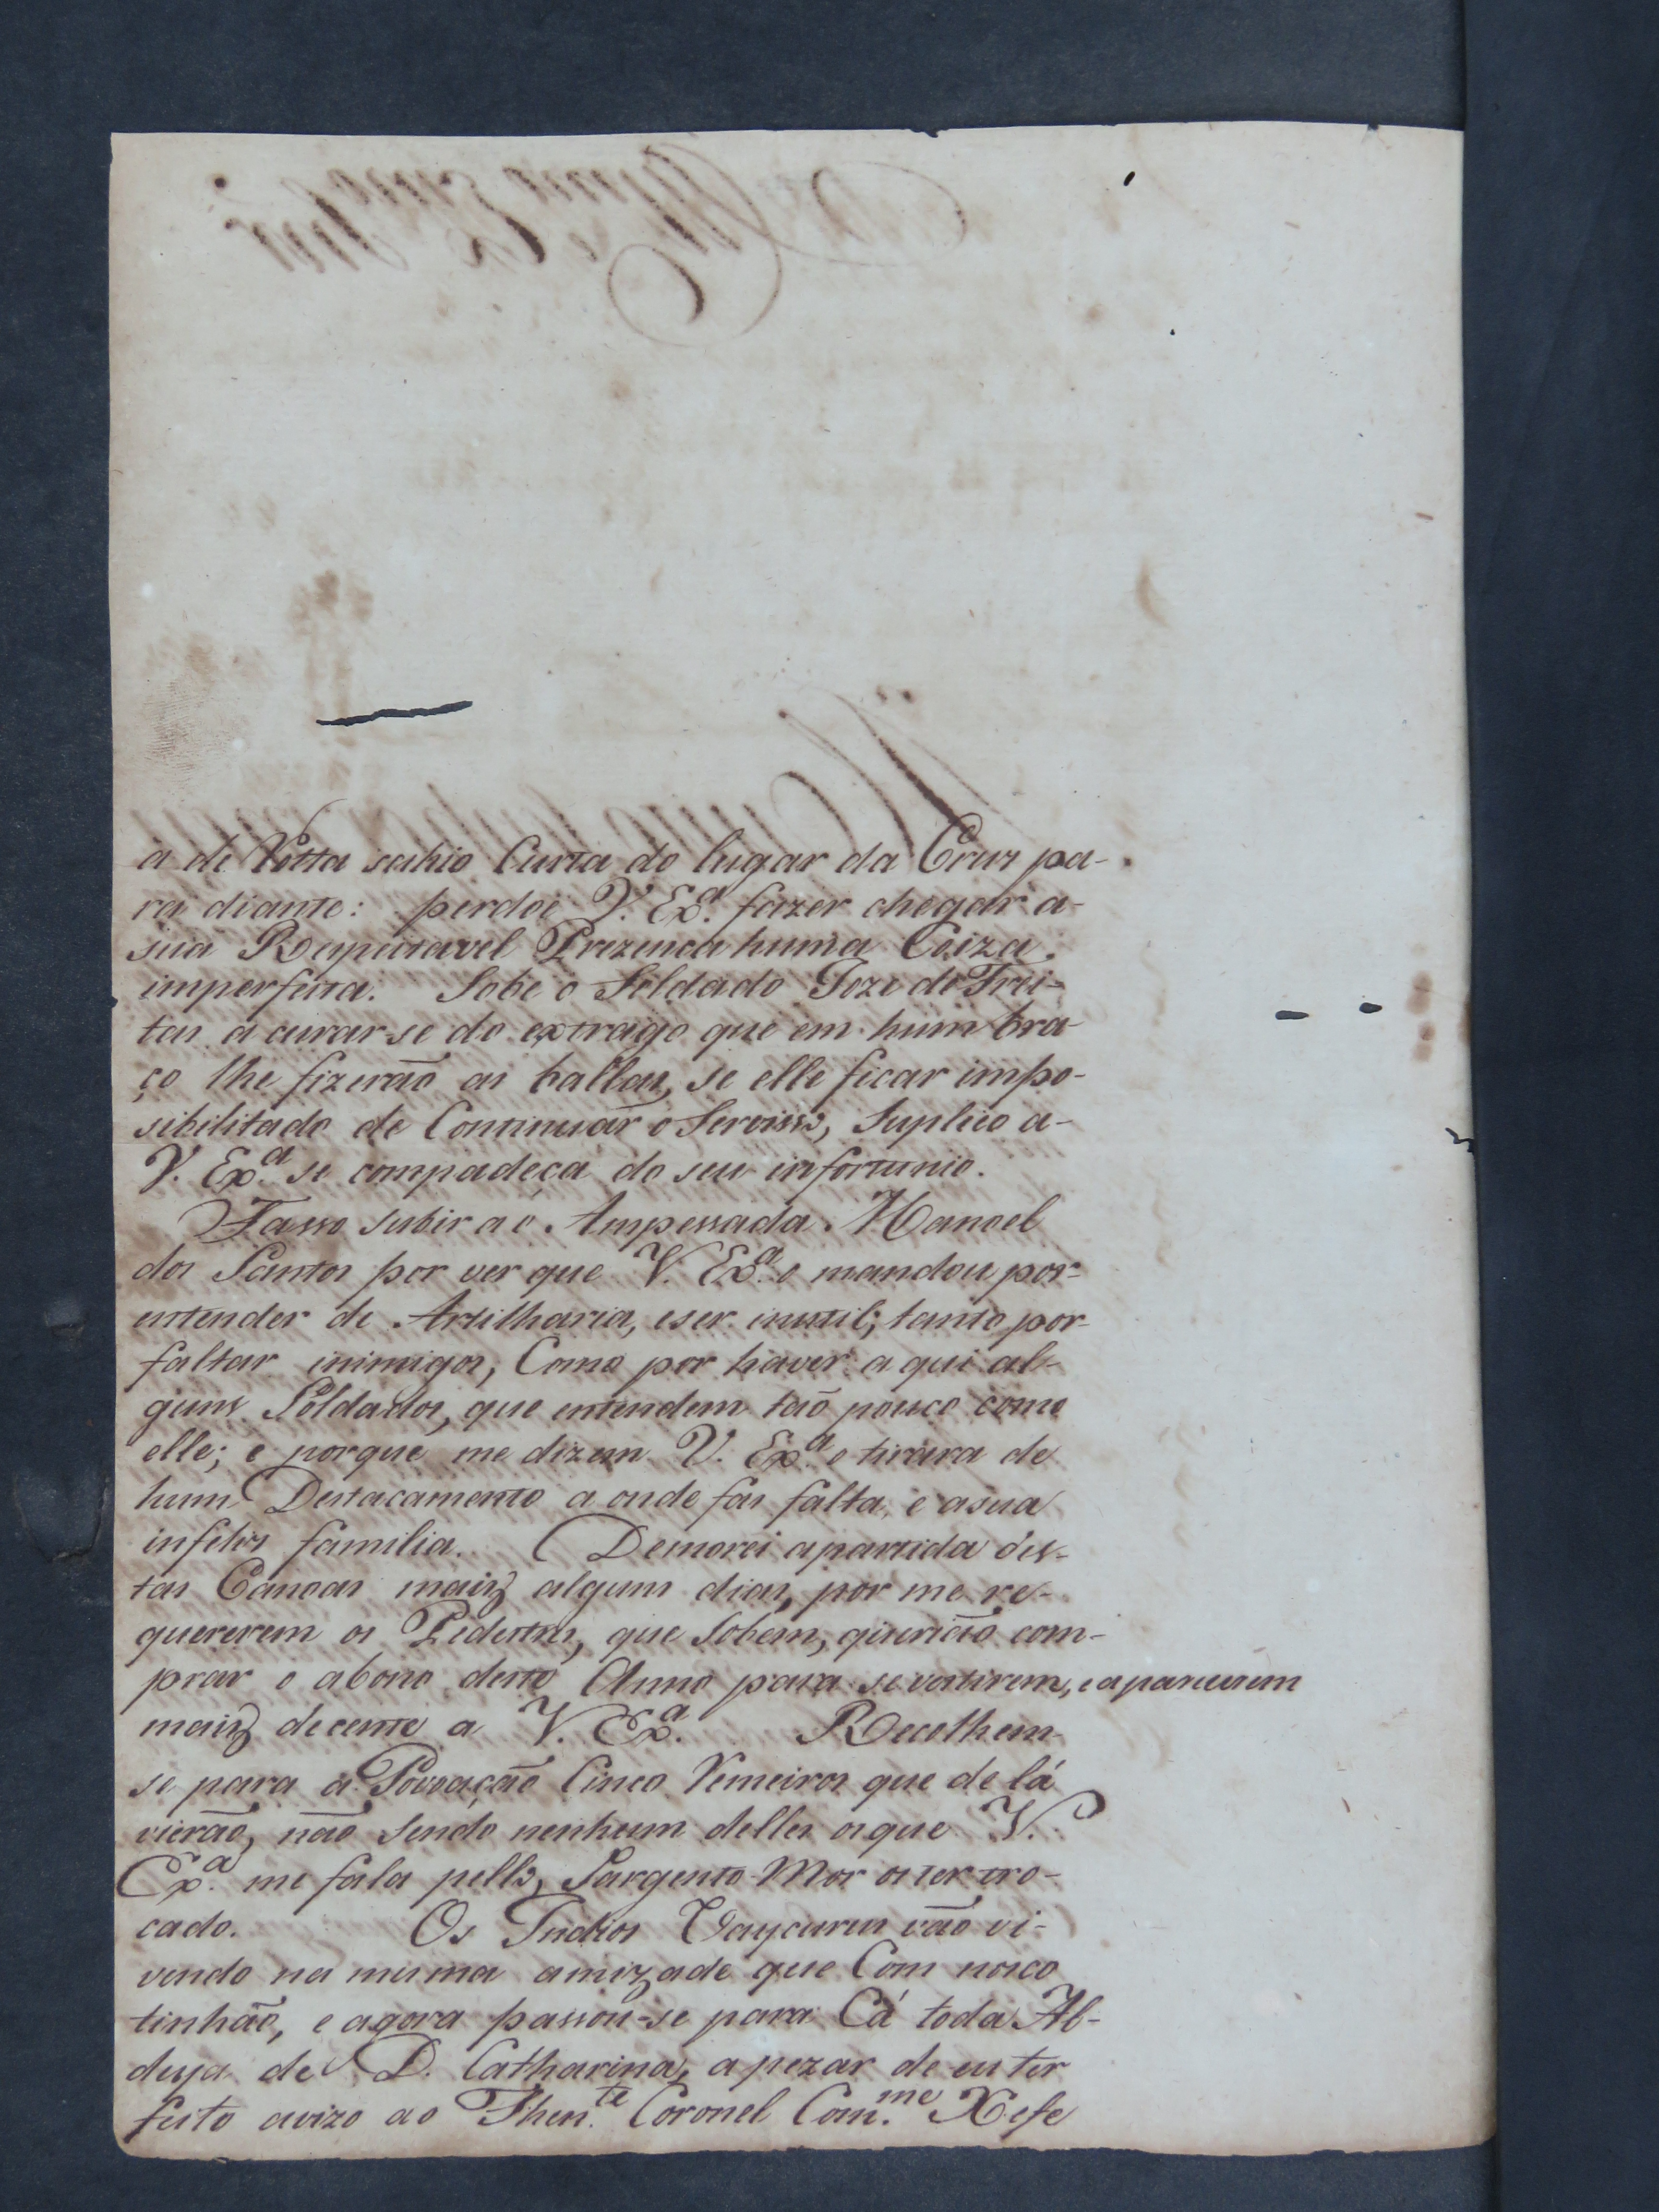 a de Votta sahio Curta do lugar da Cruz pa-
ra diante: perdoe V. Exª. fazer chegar a-
sua Respeitavel Prezença huma Coiza
imperfeita. Sobe o Soldado Joze de Frei-
tas a curar-se do extrago que em hum bra-
ço lhe fizerão as ballas, se elle ficar impo-
sibilitado de Continuar o Servisso, Suplico a-
V. Exª. se compadeça do seu infortunio.
Fasso subir a o Ampessada Manoel
dos Santos por ver que V. Exª. o mandou por-
entender de Artilharia, e ser inutil; tanto por-
faltar inimigos, Como por haver a qui al-
guns Soldados, que entendem tão pouco como
elle; e porque me dizem V. Exª. o tirara de
hum Destacamento a onde fas falta, e a sua
infelis familia. Demorei a partida des-
tas Canoas maiz alguns dias, por me re-
quererem os Pedestres, que Sobem, querião com-
prar o abono deste Anno para se vestirem, e aparecerem
maiz decente a V. Exª. Recolhem-
se para a Povoação Cinco Remeiros que de lá
vierão, não Sendo nenhum delles os que V.
Exª. me fala pello Sargento-Mor os ter tro-
cado. Os Indios Uaycurus vão vi-
vendo na mesma amizade que Com nosco
tinhão, e agora passou-se para Cá toda Al-
deya de D. Catharina, a pezar de eu ter
feito avizo ao Then.te Coronel Com.me Xefe